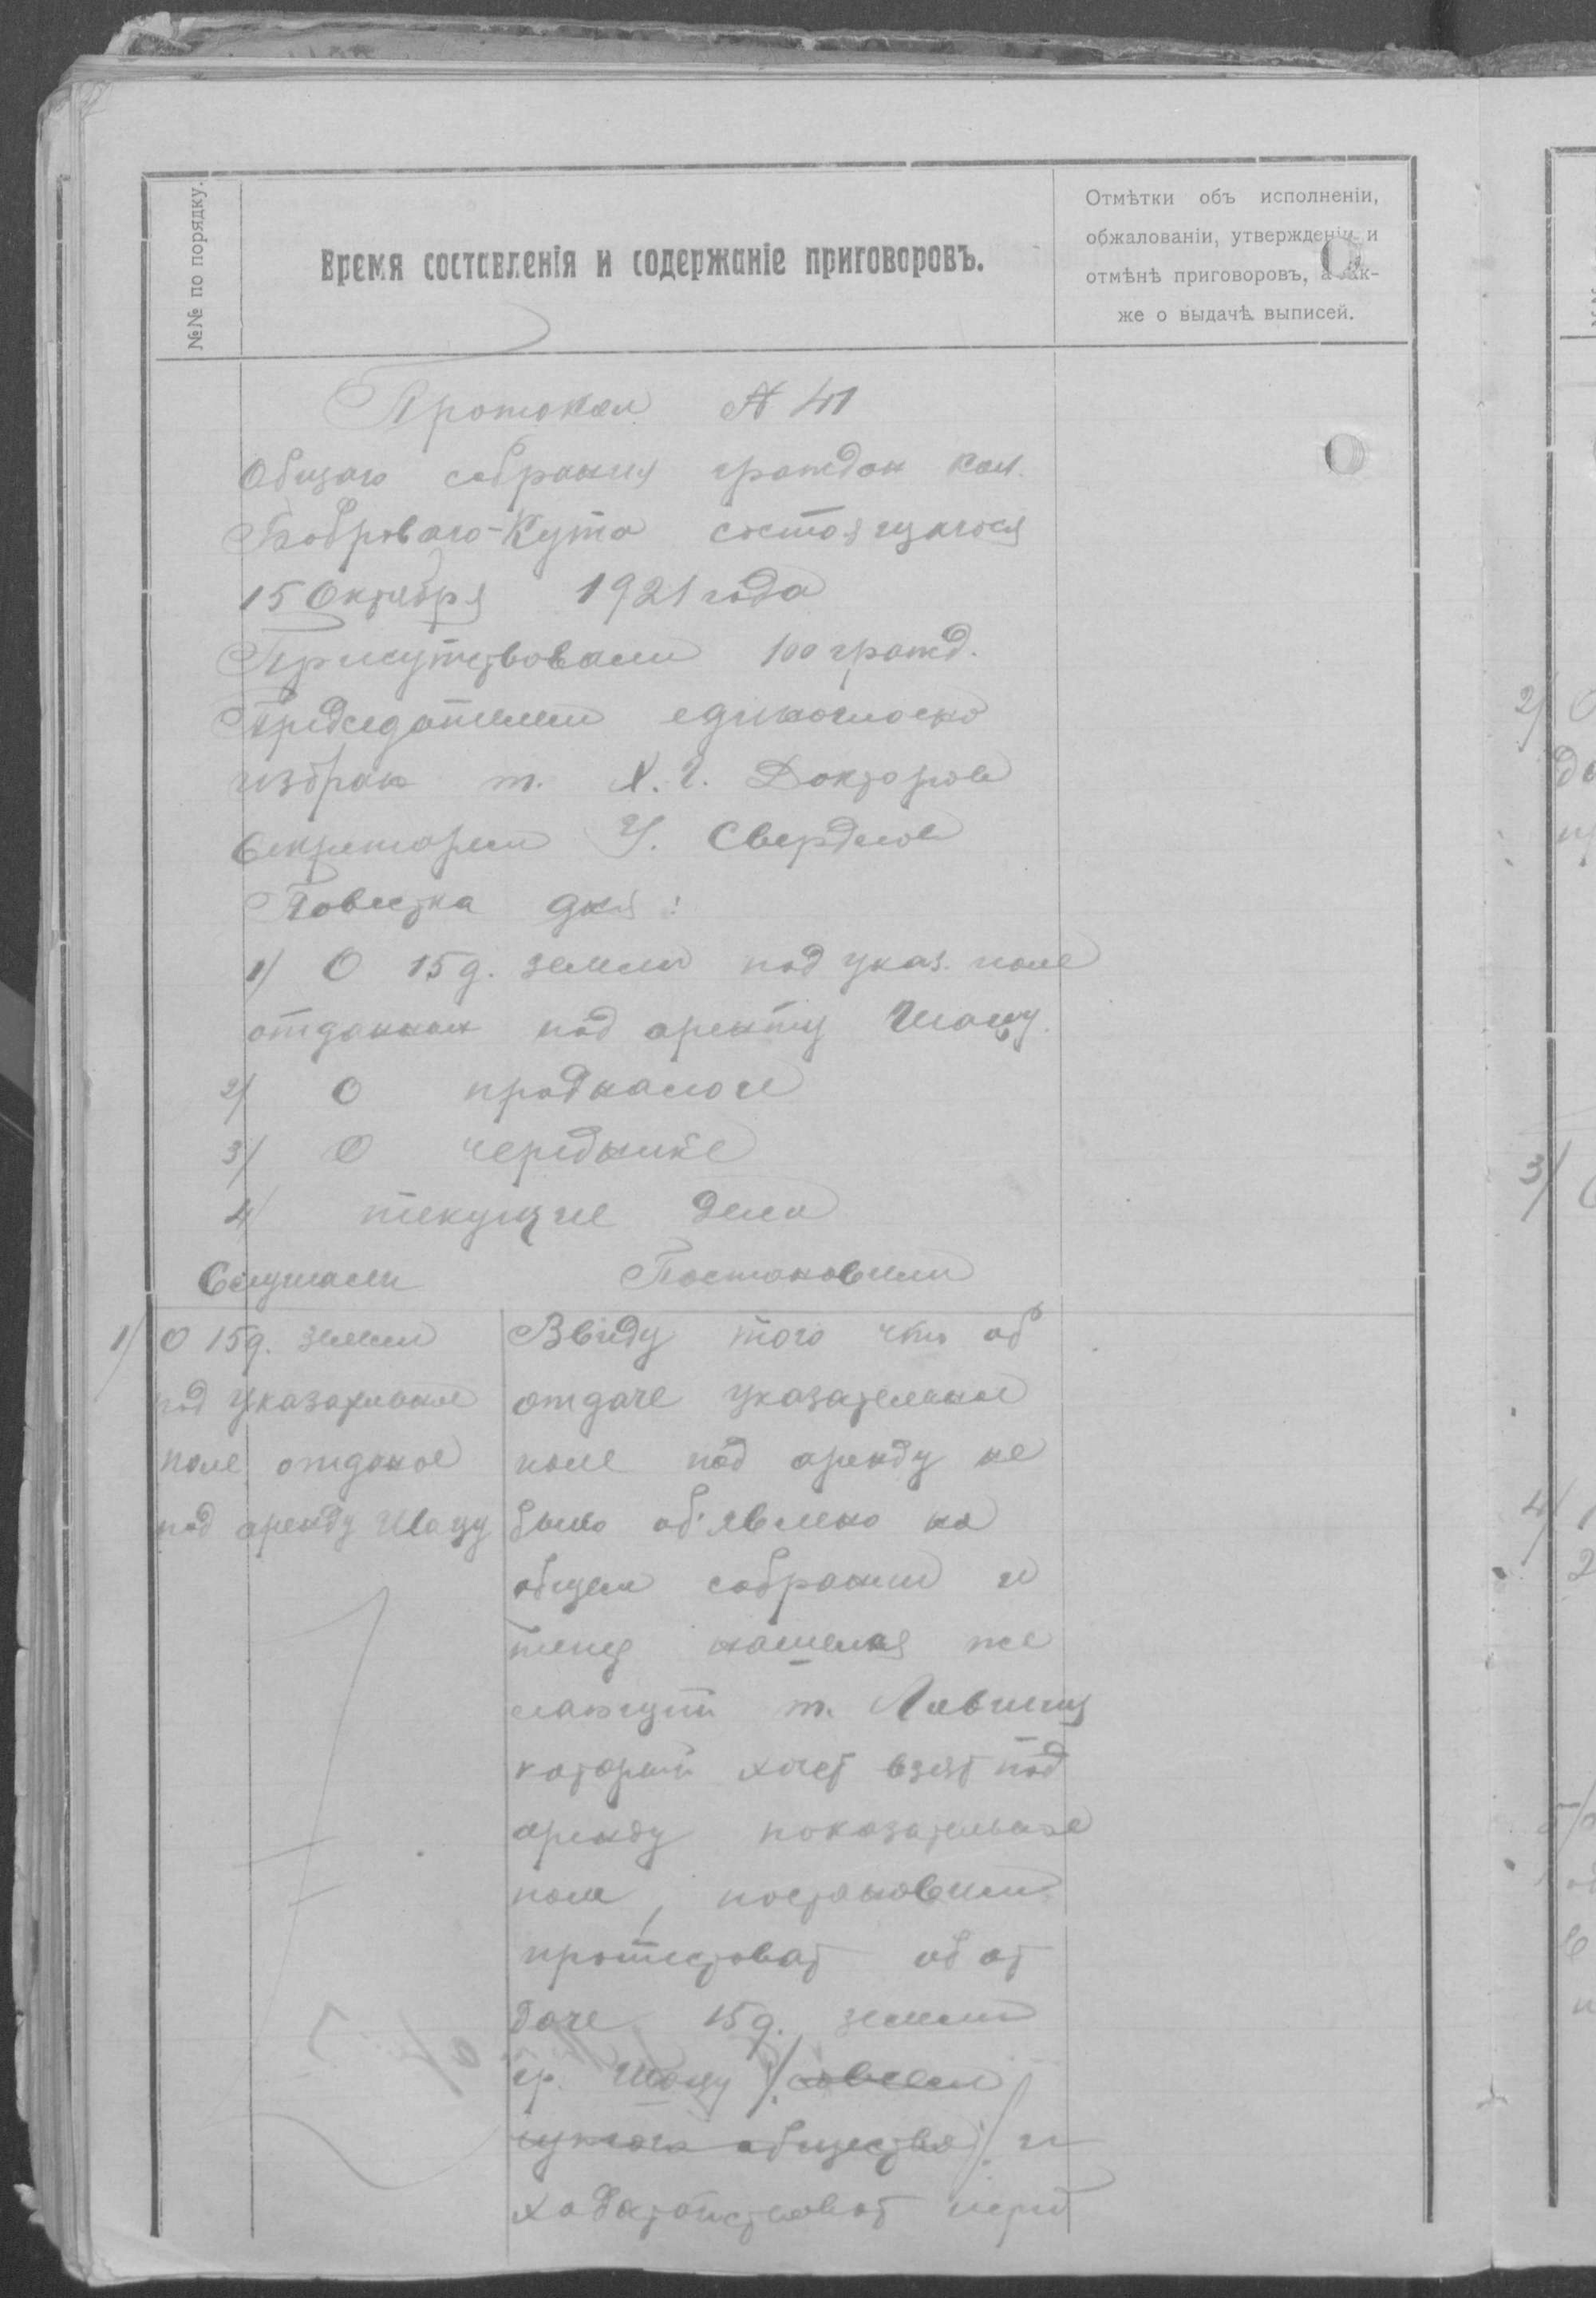 №№ по порядку.
Время составленія и содержаніе приговоровъ.
Отмѣтки объ исполненіи,
обжалованіи, утвержденіи и
отмѣнѣ приговоровъ, а так-
же о выдачѣ выписей.
Протокол № 41
Общаго собрания граждан кол.
Бобрового-Кута состоящагося
15 Октября 1921 года
Присутствовали 100 гражд.
Председателем единогласно
избран т. Х. Г. Докторов
Секретарем У. Свердлов
Повестка дня:
1) О 15 д. земли под указ. поле
отданная под аренту Шацу.
2) О продналоге
3) О череднике
4) текущие дела
Слушали Постановили
1) О 15 д. земли
под указательное
поле отданое
под аренду Шацу
Ввиду того что об
отдаче указательное
поле под аренду не
было об'явлено на
общем собрании и
тепер нашелся же
т.
который хочет взят под
аренду показательное
поле, постановили
протестоват об от
даче 15 д. земли
гр. Шацу /: совсем
чужого общества :/ и
ходатайствоват перед
2)
3)
4)